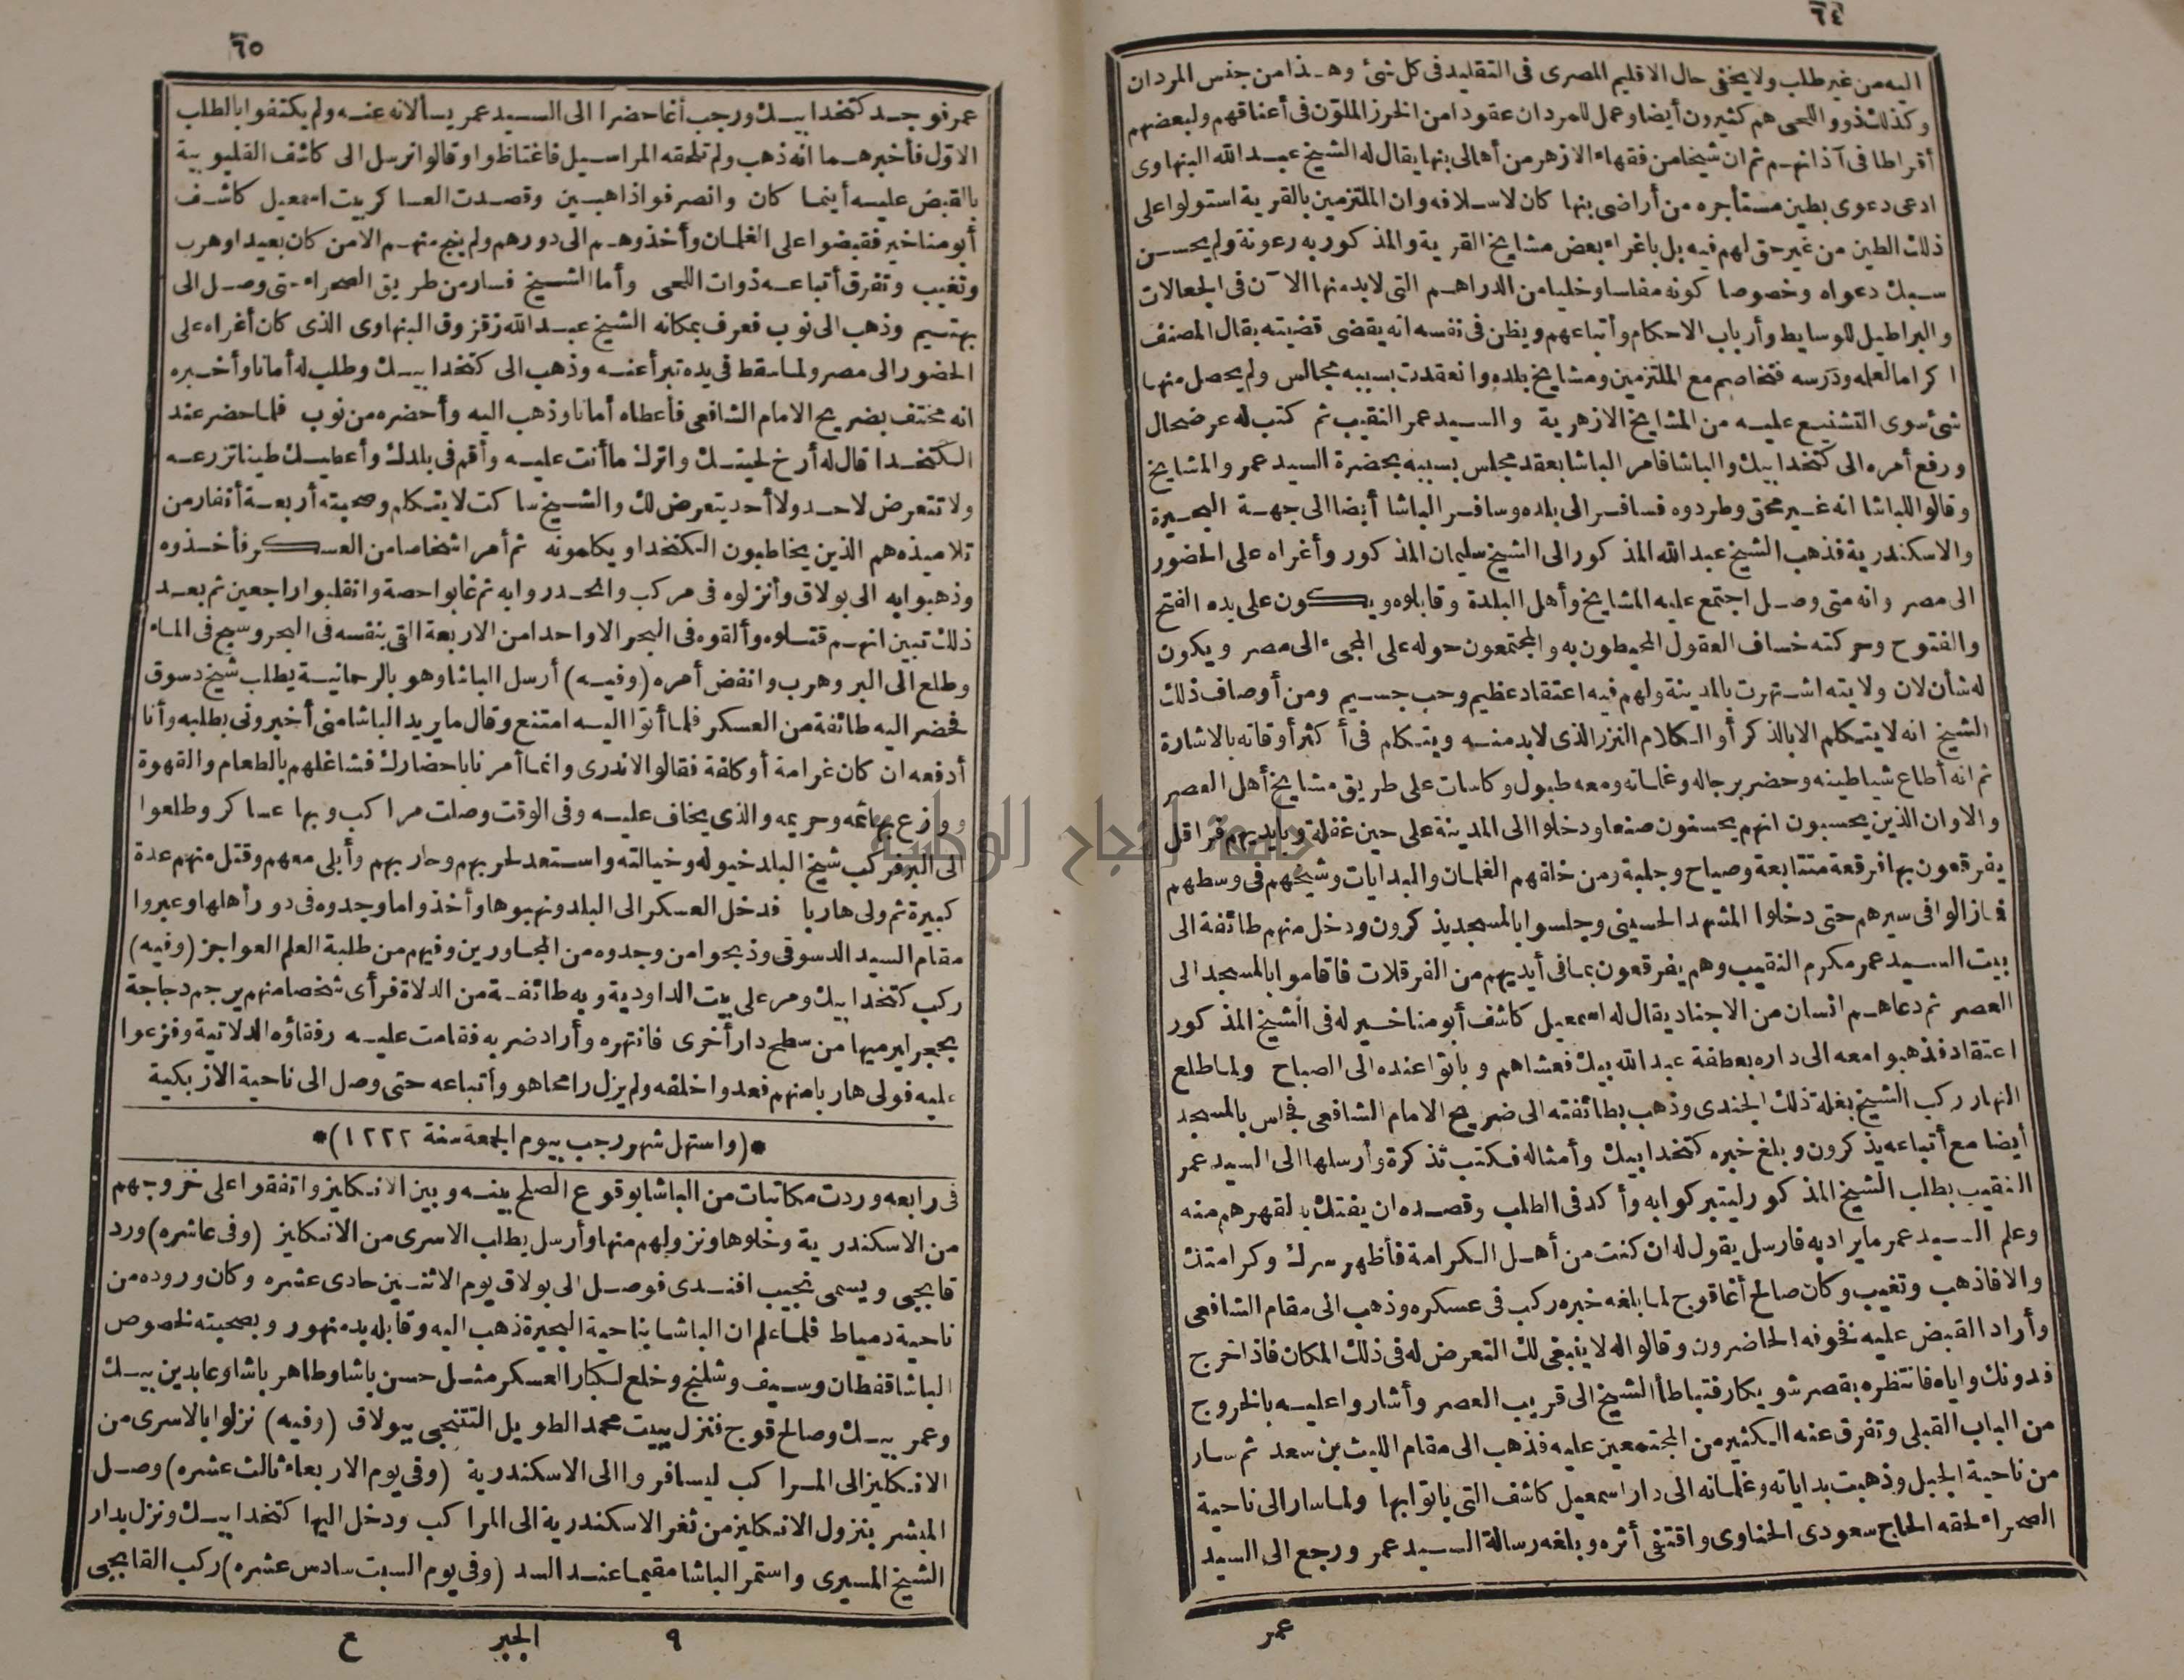 ٦٤
اليه من غير طلب ولا يخفى حال الاقليم المصرى فى التقليد فى كل شئ وهذا من جنس المردان
وكذلك ذوو اللحى هم كثيرون أيضا وعمل للمردان عقودا من الخرز الملون فى أعناقهم ولبعضهم
أقراطا فى آذانهم ثم ان شيخا من فقهاء الازهر من أهالى بنها يقال له الشيخ عبد الله البنهاوى
ادعى دعوى بطين مستأجره من أراضى بنها كان لاسلافه وان الملتزمين بالقرية استولوا على
ذلك الطين من غير حق لهم فيه بل باغراء بعض مشايخ القرية والمذكور به رعونة ولم يحسن
سبك دعواه وخصوصا كونه مفلسا وخليا من الدراهم التى لابد منها الآن فى الجعالات
والبراطيل للوسايط وأرباب الاحكام وأتباعهم ويظن فى نفسه انه يقضى قضيته بقال المصنف
اكراما لعلمه ودرسه فتخاصم مع الملتزمين ومشايخ بلده وانعقدت بسببه مجالس ولم يحصل منها
شئ سوى التشنيع عليه من المشايخ الازهرية والسيد عمر النقيب ثم كتب له عرضحال
ورفع أمره الى كتخدا بيك والباشا فامر الباشا بعقد مجلس بسببه بحضرة السيد عمر والمشايخ
وقالوا للباشا انه غير محق وطردوه فسافر الى بلده وسافر الباشا أيضا الى جهة البحيرة
والاسكندرية فذهب الشيخ عبد الله المذكور الى الشيخ سليمان المذكور وأغراه على الحضور
الى مصر وانه متى وصل اجتمع عليه المشايخ وأهل البلدة وقابلوه ويكون على يده الفتح
والفتوح وحركته خساف العقول المحيطون به والمجتمعون حوله على المجىء الى مصر ويكون
له شأن لان ولايته اشتهرت بالمدينة ولهم فيه اعتقاد عظيم وحب جسيم ومن أوصاف ذلك
الشيخ انه لا يتكلم الا بالذكر أو الكلام النزر الذى لابد منه ويتكلم فى أكثر أوقاته بالاشارة
ثم انه أطاع شياطينه وحضر برجاله وغلمانه ومعه طبول وكاسات على طريق مشايخ أهل العصر
والاوان الذين يحسبون انهم يحسنون صنعا ودخلوا الى المدينة على حين غفلة وبأيديهم فراقل
يفرقعون بها فرقعة متتابعة وصياح وجلبة ومن خلفهم الغلمان والبدايات وشيخهم فى وسطهم
فمازالوا فى سيرهم حتى دخلوا المشهد الحسينى وجلسوا بالمسجد يذكرون ودخل منهم طائفة الى
بيت السيد عمر مكرم النقيب وهم يفرقعون بما فى أيديهم من الفرقلات فاقاموا بالمسجد الى
العصر ثم دعاهم انسان من الاجناد يقال له اسمعيل كاشف أبو مناخير له فى الشيخ المذكور
اعتقاد فذهبوا معه الى داره بعطفة عبد الله بيك فعشاهم وباتوا عنده الى الصباح ولما طلع
النهار ركب الشيخ بغلة ذلك الجندى وذهب بطائفته الى ضريح الامام الشافعى فجلس بالمسجد
أيضا مع أتباعه يذكرون وبلغ خبره كتخدا بيك وأمثاله فكتب تذكرة وأرسلها الى السيد عمر
النقيب بطلب الشيخ المذكور ليتبركوا به وأكد فى الطلب وقصده ان يفتك به لقهرهم منه
وعلم السيد عمر ما يراد به فارسل يقول له ان كنت من أهل الكرامة فأظهر سرك وكرامتك
والا فاذهب وتغيب وكان صالح أغا قوج لما بلغه خبره ركب فى عسكره وذهب الى مقام الشافعى
وأراد القبض عليه فخوفه الحاضرون وقالوا له لا ينبغى لك التعرض له فى ذلك المكان فاذا خرج
فدونك واياه فانتظره بقصر شويكار فتباطأ الشيخ الى قريب العصر وأشاروا عليه بالخروج
من الباب القبلى وتفرق عنه الكثير من المجتمعين عليه فذهب الى مقام الليث بن سعد ثم سار
من ناحية الجبل وذهبت بداياته وغلمانه الى دار اسمعيل كاشف التى باتوا بها ولما سار الى ناحية
الصحراء لحقه الحاج سعودى الحناوى واقتفى أثره وبلغه رسالة السيد عمر ورجع الى السيد
عمر
٦٥
عمر فوجد كتخدا بيك ورجب أغا حضرا الى السيد عمر يسألانه عنه ولم يكتفوا بالطلب
الاول فأخبرهما انه ذهب ولم تلحقه المراسيل فاغتاظوا وقالوا نرسل الى كاشف القليوبية
بالقبض عليه أينما كان وانصرفوا ذاهبين وقصدت العساكر بيت اسمعيل كاشف
أبو مناخير فقبضوا على الغلمان وأخذوهم الى دورهم ولم ينج منهم الا من كان بعيدا وهرب
وتغيب وتفرق أتباعه ذوات اللحى وأما الشيخ فسار من طريق الصحراء حتى وصل الى
بهتيم وذهب الى نوب فعرف بمكانه الشيخ عبد الله زقزوق البنهاوى الذى كان أغراه على
الحضور الى مصر ولما سقط فى يده تبرأ عنه وذهب الى كتخدا بيك وطلب له أمانا وأخبره
انه مختف بضريح الامام الشافعى فأعطاه أمانا وذهب اليه وأحضره من نوب فلما حضر عند
الكتخدا قال له أرخ لحيتك واترك ما أنت عليه وأقم فى بلدك وأعطيك طينا تزرعه
ولا تتعرض لاحد ولا أحد يتعرض لك والشيخ ساكت لا يتكلم وصحبته أربعة أنفار من
تلاميذه هم الذين يخاطبون الكتخدا ويكلمونه ثم أمر اشخاصا من العسكر فأخذوه
وذهبوا به الى بولاق وأنزلوه فى مركب وانحدروا به ثم غابوا حصة وانقلبوا راجعين ثم بعد
ذلك تبين انهم قتلوه وألقوه فى البحر الا واحدا من الاربعة القى بنفسه فى البحر وسبح فى الماء
وطلع الى البر وهرب وانفض أمره (وفيه) أرسل الباشا وهو بالرحمانية يطلب شيخ دسوق
فحضر اليه طائفة من العسكر فلما أتوا اليه امتنع وقال ما يريد الباشا منى أخبرونى بطلبه وأنا
أدفعه ان كان غرامة أو كلفة فقالوا لا ندرى وانما أمرنا باحضارك فشاغلهم بالطعام والقهوة
ووزع بهائمه وحريمه والذى يخاف عليه وفى الوقت وصلت مراكب وبها عساكر وطلعوا
الى البر فركب شيخ البلد خيوله وخيالته واستعد لحربهم وحاربهم وأبلى معهم وقتل منهم عدة
كبيرة ثم ولى هاربا فدخل العسكر الى البلد ونهبوها وأخذوا ما وجدوه فى دور أهلها وعبروا
مقام السيد الدسوقى وذبحوا من وجدوه من المجاورين وفيهم من طلبة العلم العواجز (وفيه)
ركب كتخدا بيك ومر على بيت الداودية وبه طائفة من الدلاة فرأى شخصا منهم يرجم دجاجة
بحجر ليرميها من سطح دار أخرى فانتهره وأراد ضربه فقامت عليه رفقاؤه الدلاتية وفزعوا
عليه فولى هاربا منهم فعدوا خلفه ولم يزل رامحا هو وأتباعه حتى وصل الى ناحية الازبكية
*(واستهل شهر رجب بيوم الجمعة سنة ١٢٢٢)*
فى رابعه وردت مكاتبات من الباشا بوقوع الصلح بينه وبين الانكليز واتفقوا على خروجهم
من الاسكندرية وخلوها ونزولهم منها وأرسل يطلب الاسرى من الانكليز (وفى عاشره) ورد
قابجى ويسمى نجيب افندى فوصل الى بولاق يوم الاثنين حادى عشره وكان وروده من
ناحية دمياط فلما علم ان الباشا بناحية البحيرة ذهب اليه وقابله بدمنهور وبصحبته لخصوص
الباشا قفطان وسيف وشلنج وخلع لكبار العسكر مثل حسن باشا وطاهر باشا وعابدين بيك
وعمر بيك وصالح قوج فنزل ببيت محمد الطويل التتنجى ببولاق (وفيه) نزلوا بالاسرى من
الانكليز الى المراكب ليسافروا الى الاسكندرية (وفى يوم الاربعاء ثالث عشره) وصل
المبشر بنزول الانكليز من ثغر الاسكندرية الى المراكب ودخل اليها كتخدا بيك ونزل بدار
الشيخ المسيرى واستمر الباشا مقيما عند السد (وفى يوم السبت سادس عشره) ركب القابجى
٩ الجبر ع
جامعة النجاح الوطنية